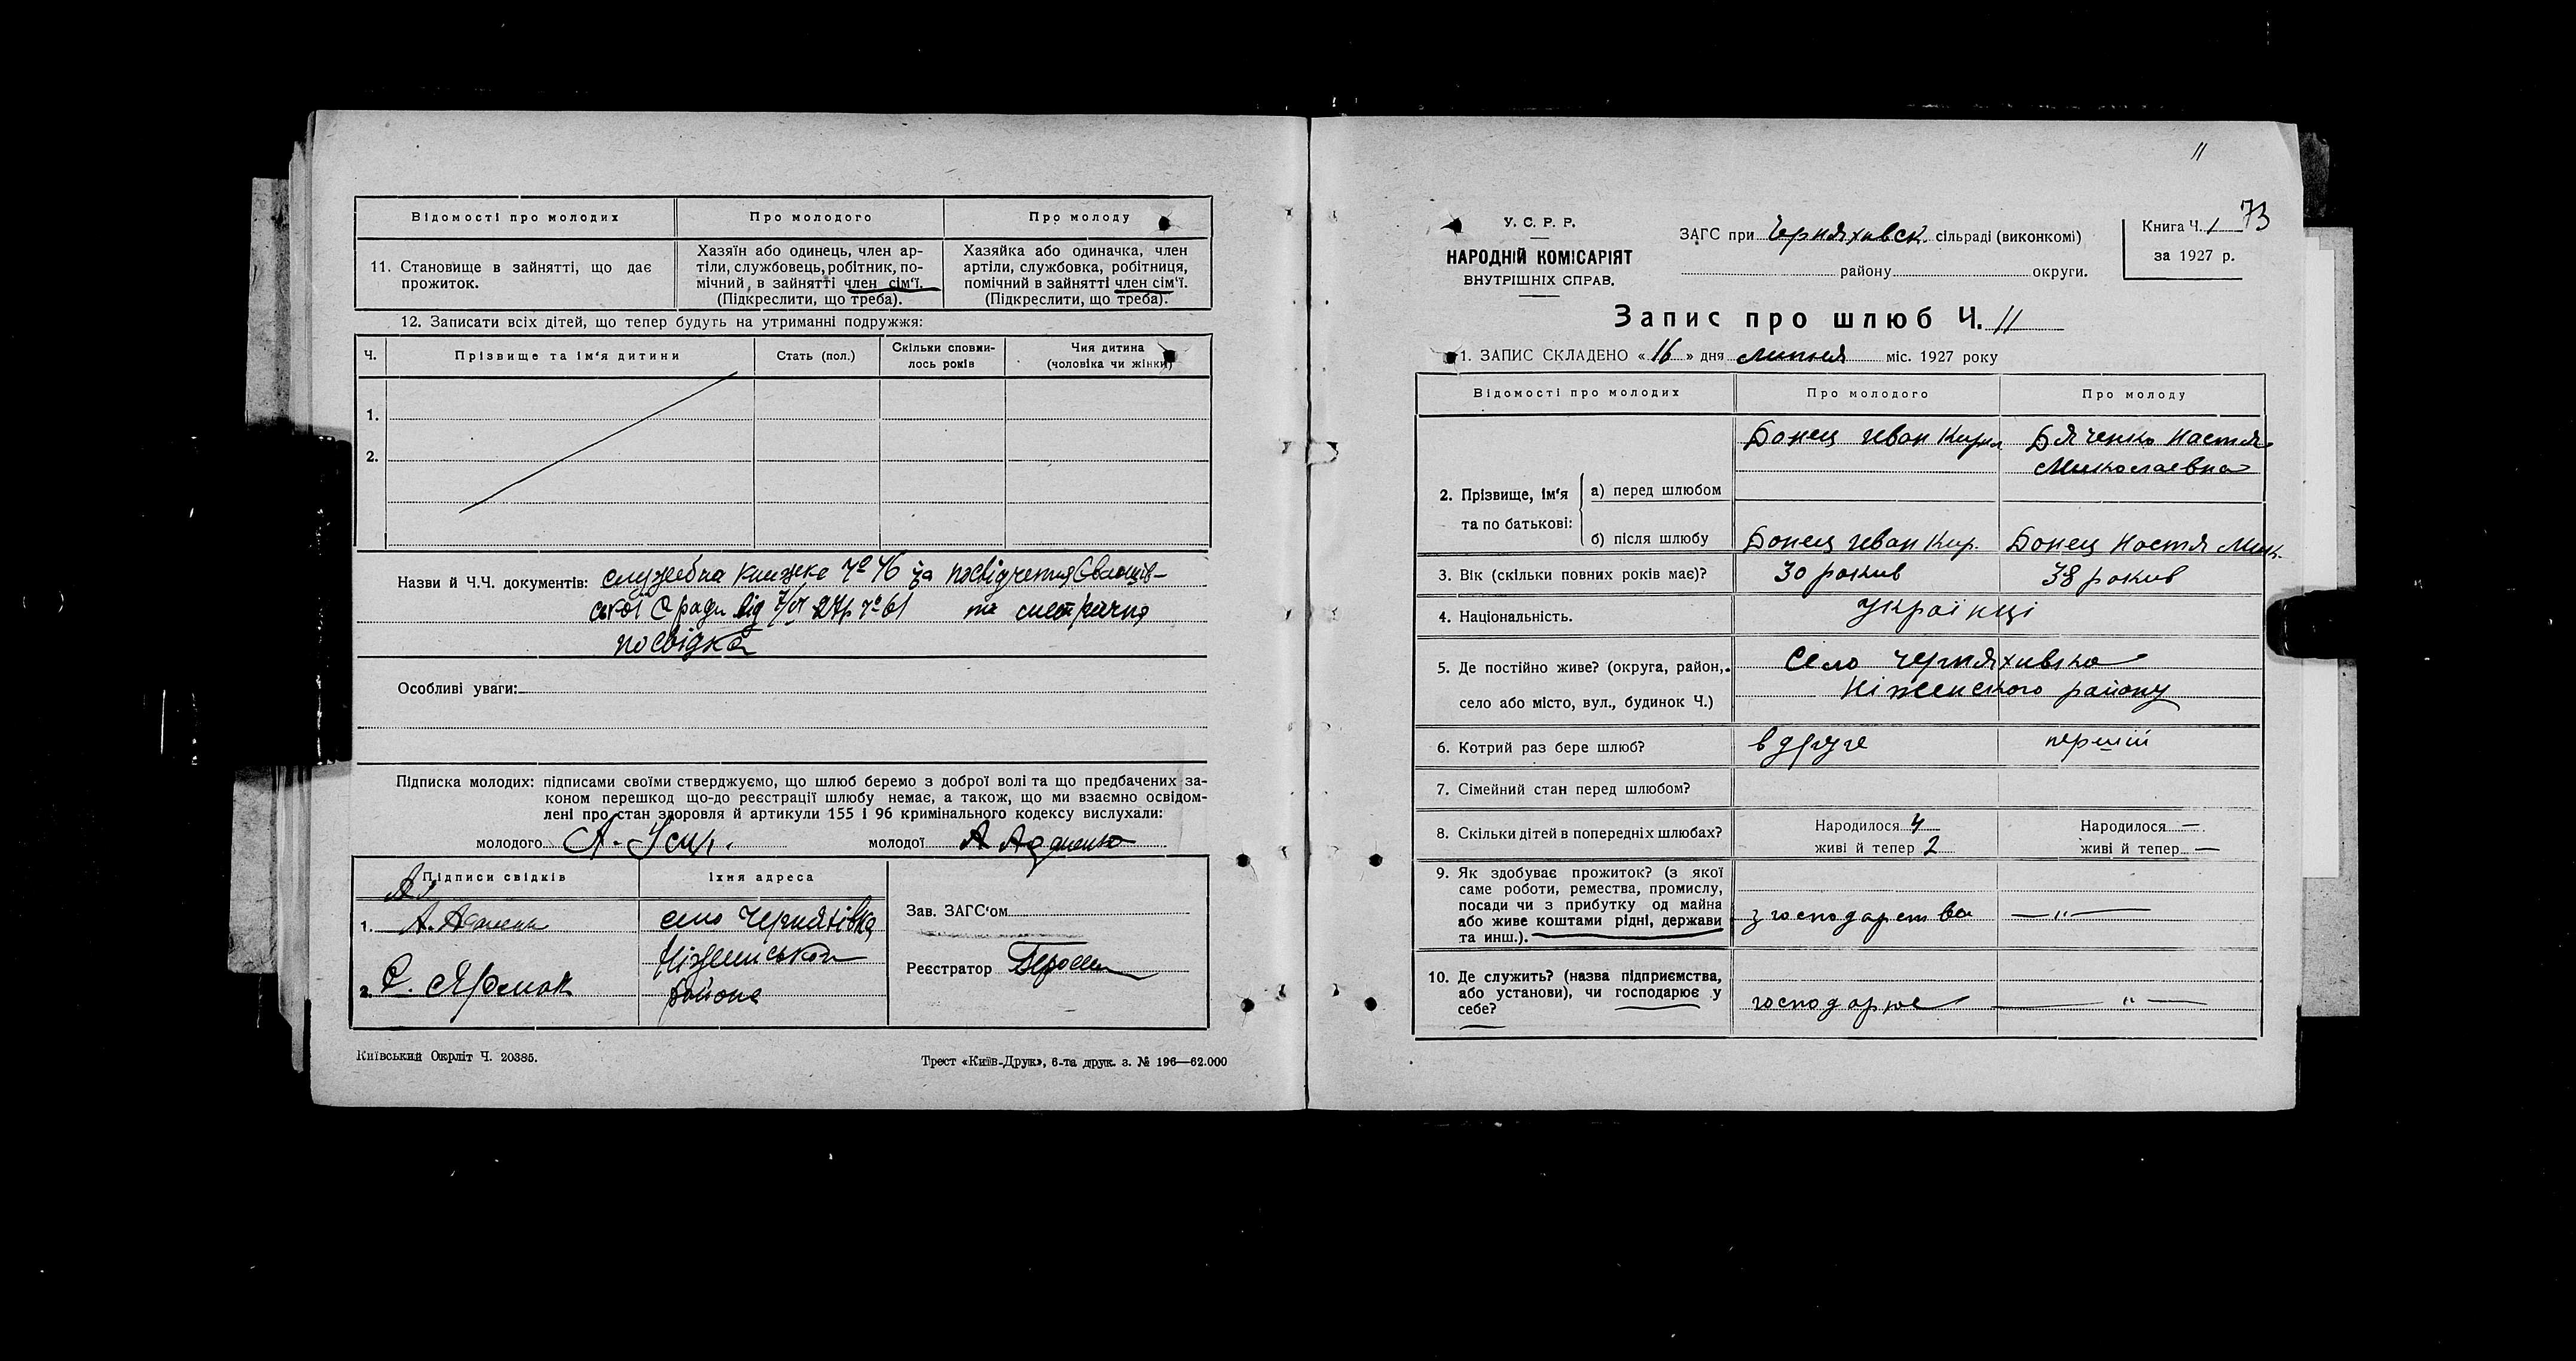 Відомості про молодих
Про молодого
Про молоду
11. Становище в зайнятті, що дає
прожиток.
Хазяїн або одинець, член ар-
тіли, службовець, робітник, по-
мічний в зайнятті член сім'ї.
(Підкреслити, що треба).
Хазяйка або одиначка, член
артіли, службовка, робітниця,
помічний в зайнятті член сім'ї.
(Підкреслити, що треба).
12. Записати всіх дітей, що тепер будуть на утриманні подружжя:
Ч.
Прізвище та ім'я дитини
Стать (пол.)
Скільки сповни-
лось років
Чия дитина
(чоловіка чи жінки)
1.
2.
Назви й Ч.Ч. документів: службна книжка № 46 та посвідчення
ської С ради від 27р № 61 та
посвідка
Особливі уваги:
Підписка молодих: підписами своїми стверджуємо, що шлюб беремо з доброї волі та що предбачених за-
коном перешкод що-до реєстрації шлюбу немає, а також, що ми взаємно освідом-
лені про стан здоровля й артикули 155 і 96 кримінального кодексу вислухали:
молодого А. молодої А
Підписи свідків
Їхня адреса
1. А.
село Черняхівка
Ніженського
району
2. С. Ярмак
Зав. ЗАГС'ом
Реєстратор
Київський Окрліт Ч. 20385.
Трест «Київ-Друк», 6-та друк. з. № 196—62.000
11
73
У. С. Р. Р.
НАРОДНІЙ КОМІСАРІЯТ
ВНУТРІШНІХ СПРАВ.
ЗАГС при Черняхивск. сільраді (виконкомі)
району округи.
Книга Ч. 1
за 1927 р.
Запис про шлюб Ч. 11
1. ЗАПИС СКЛАДЕНО « 16 » дня липня міс. 1927 року
Відомості про молодих
Про молодого
Про молоду
2. Прізвище, ім'я
та по батькові:
а) перед шлюбом
Донец Иван Кирил
Дяченко Настя
Миколаевна
б) після шлюбу
Донец Иван Кир.
Донец Настя Мик.
3. Вік (скільки повних років має)?
30 рокив
38 рокив
4. Національність.
Українці
5. Де постійно живе? (округа, район,
село або місто, вул., будинок Ч.)
Село Черняхивка
Ніженского району
6. Котрий раз бере шлюб?
вдруге
першій
7. Сімейний стан перед шлюбом?
8. Скільки дітей в попередніх шлюбах?
Народилося 4
живі й тепер 2
Народилося —
живі й тепер —
9. Як здобуває прожиток? (з якої
саме роботи, ремества, промислу,
посади чи з прибутку од майна
або живе коштами рідні, держави
та инш.).
з господарства
— „ —
10. Де служить? (назва підприємства,
або установи), чи господарює у
себе?
господарює
— „ —